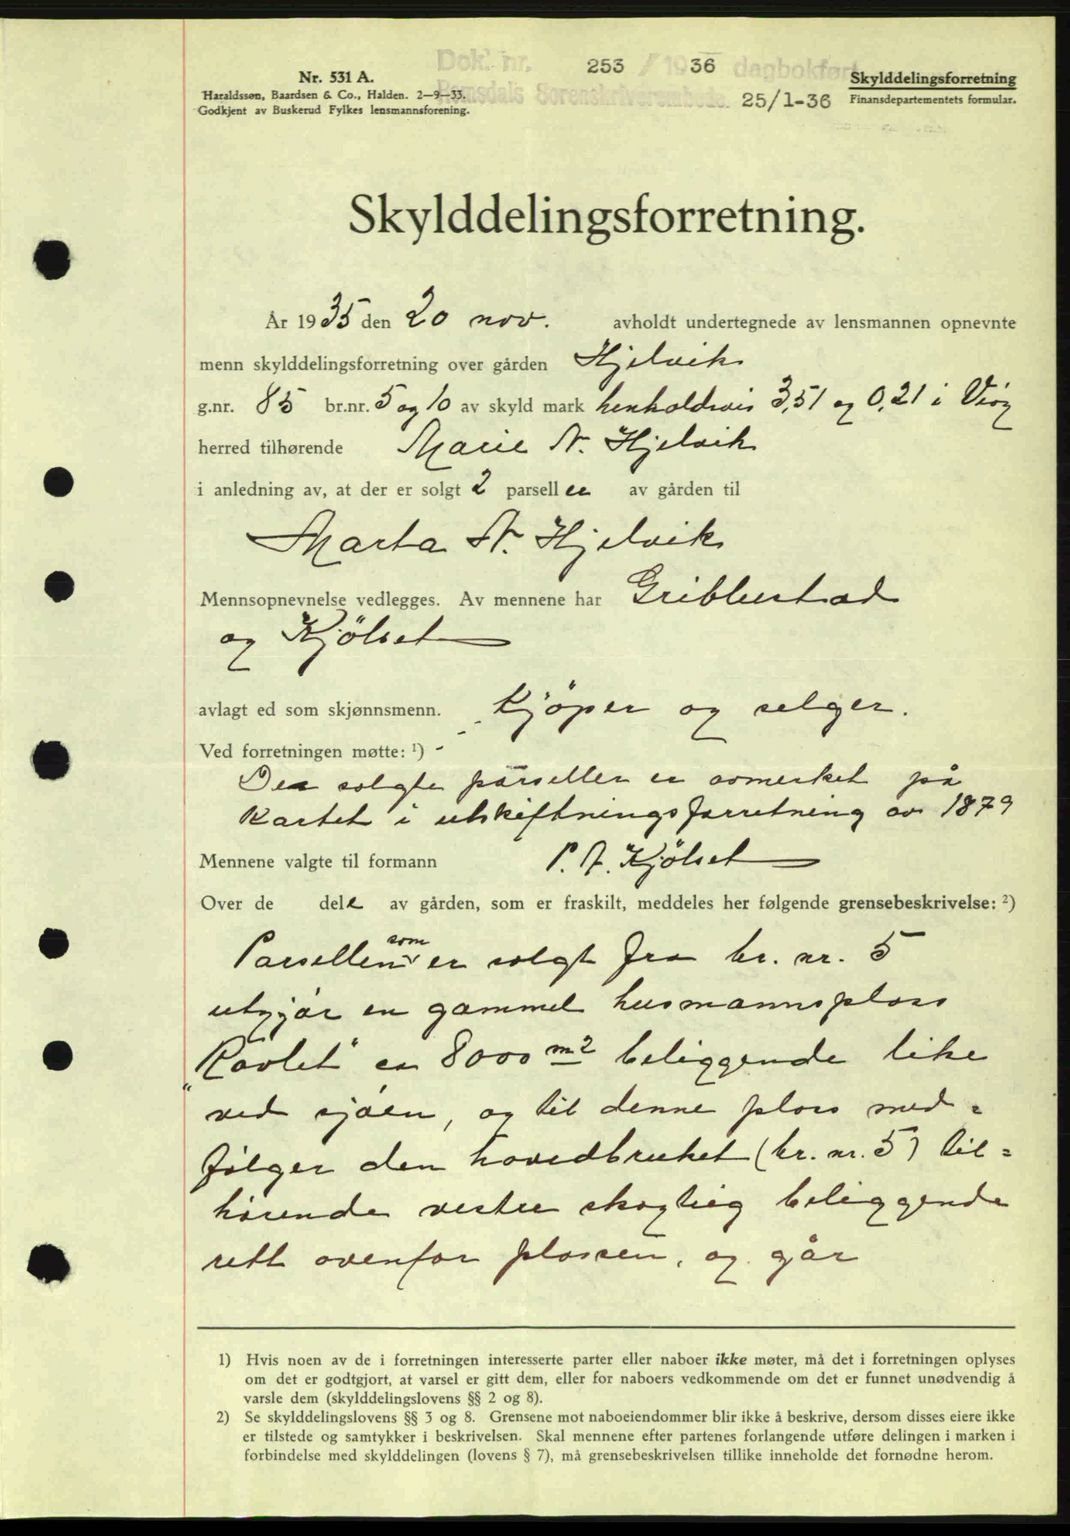 Dok. nr. 253 / 1936 dagbokført
Romsdals Sorenskriverembede. 25/1-36
Nr. 531 A.
Haraldssøn, Baardsen & Co., Halden. 2—9—33.
Godkjent av Buskerud Fylkes lensmannsforening.
Skylddelingsforretning
Finansdepartementets formular.
Skylddelingsforretning.
År 1935 den 20 nov. avholdt undertegnede av lensmannen opnevnte
menn skylddelingsforretning over gården Hjelvik
g.nr. 85 br.nr. 5 og 10 av skyld mark henholdsvis 3,51 og 0,21 i Vøy
herred tilhørende Marie N. Hjelvik
i anledning av, at der er solgt 2 parseller av gården til
Marta N. Hjelvik
Mennsopnevnelse vedlegges. Av mennene har Gribbestad
og Kjölset
avlagt ed som skjønnsmenn. Kjöper og selger.
Ved forretningen møtte: ¹) -
De solgte parseller er avmerket på
Kartet i utskiftningsforretning av 1879
Mennene valgte til formann P. A. Kjölset
Over de dele av gården, som er fraskilt, meddeles her følgende grensebeskrivelse: ²)
Parsellen som er solgt fra br. nr. 5
utgjør en gammel husmannsplass
"Kavlet" ca 8000 m2 beliggende like
ved sjøen, og til denne plass med=
følger den hovedbruket (br. nr. 5) til=
hørende vestre skogteig beliggende
rett ovenfor plassen, og går
1) Hvis noen av de i forretningen interesserte parter eller naboer ikke møter, må det i forretningen oplyses
om det er godtgjort, at varsel er gitt dem, eller for naboers vedkommende om det er funnet unødvendig å
varsle dem (skylddelingslovens §§ 2 og 8).
2) Se skylddelingslovens §§ 3 og 8. Grensene mot naboeiendommer blir ikke å beskrive, dersom disses eiere ikke
er tilstede og samtykker i beskrivelsen. Skal mennene efter partenes forlangende utføre delingen i marken i
forbindelse med skylddelingen (lovens § 7), må grensebeskrivelsen tillike inneholde det fornødne herom.